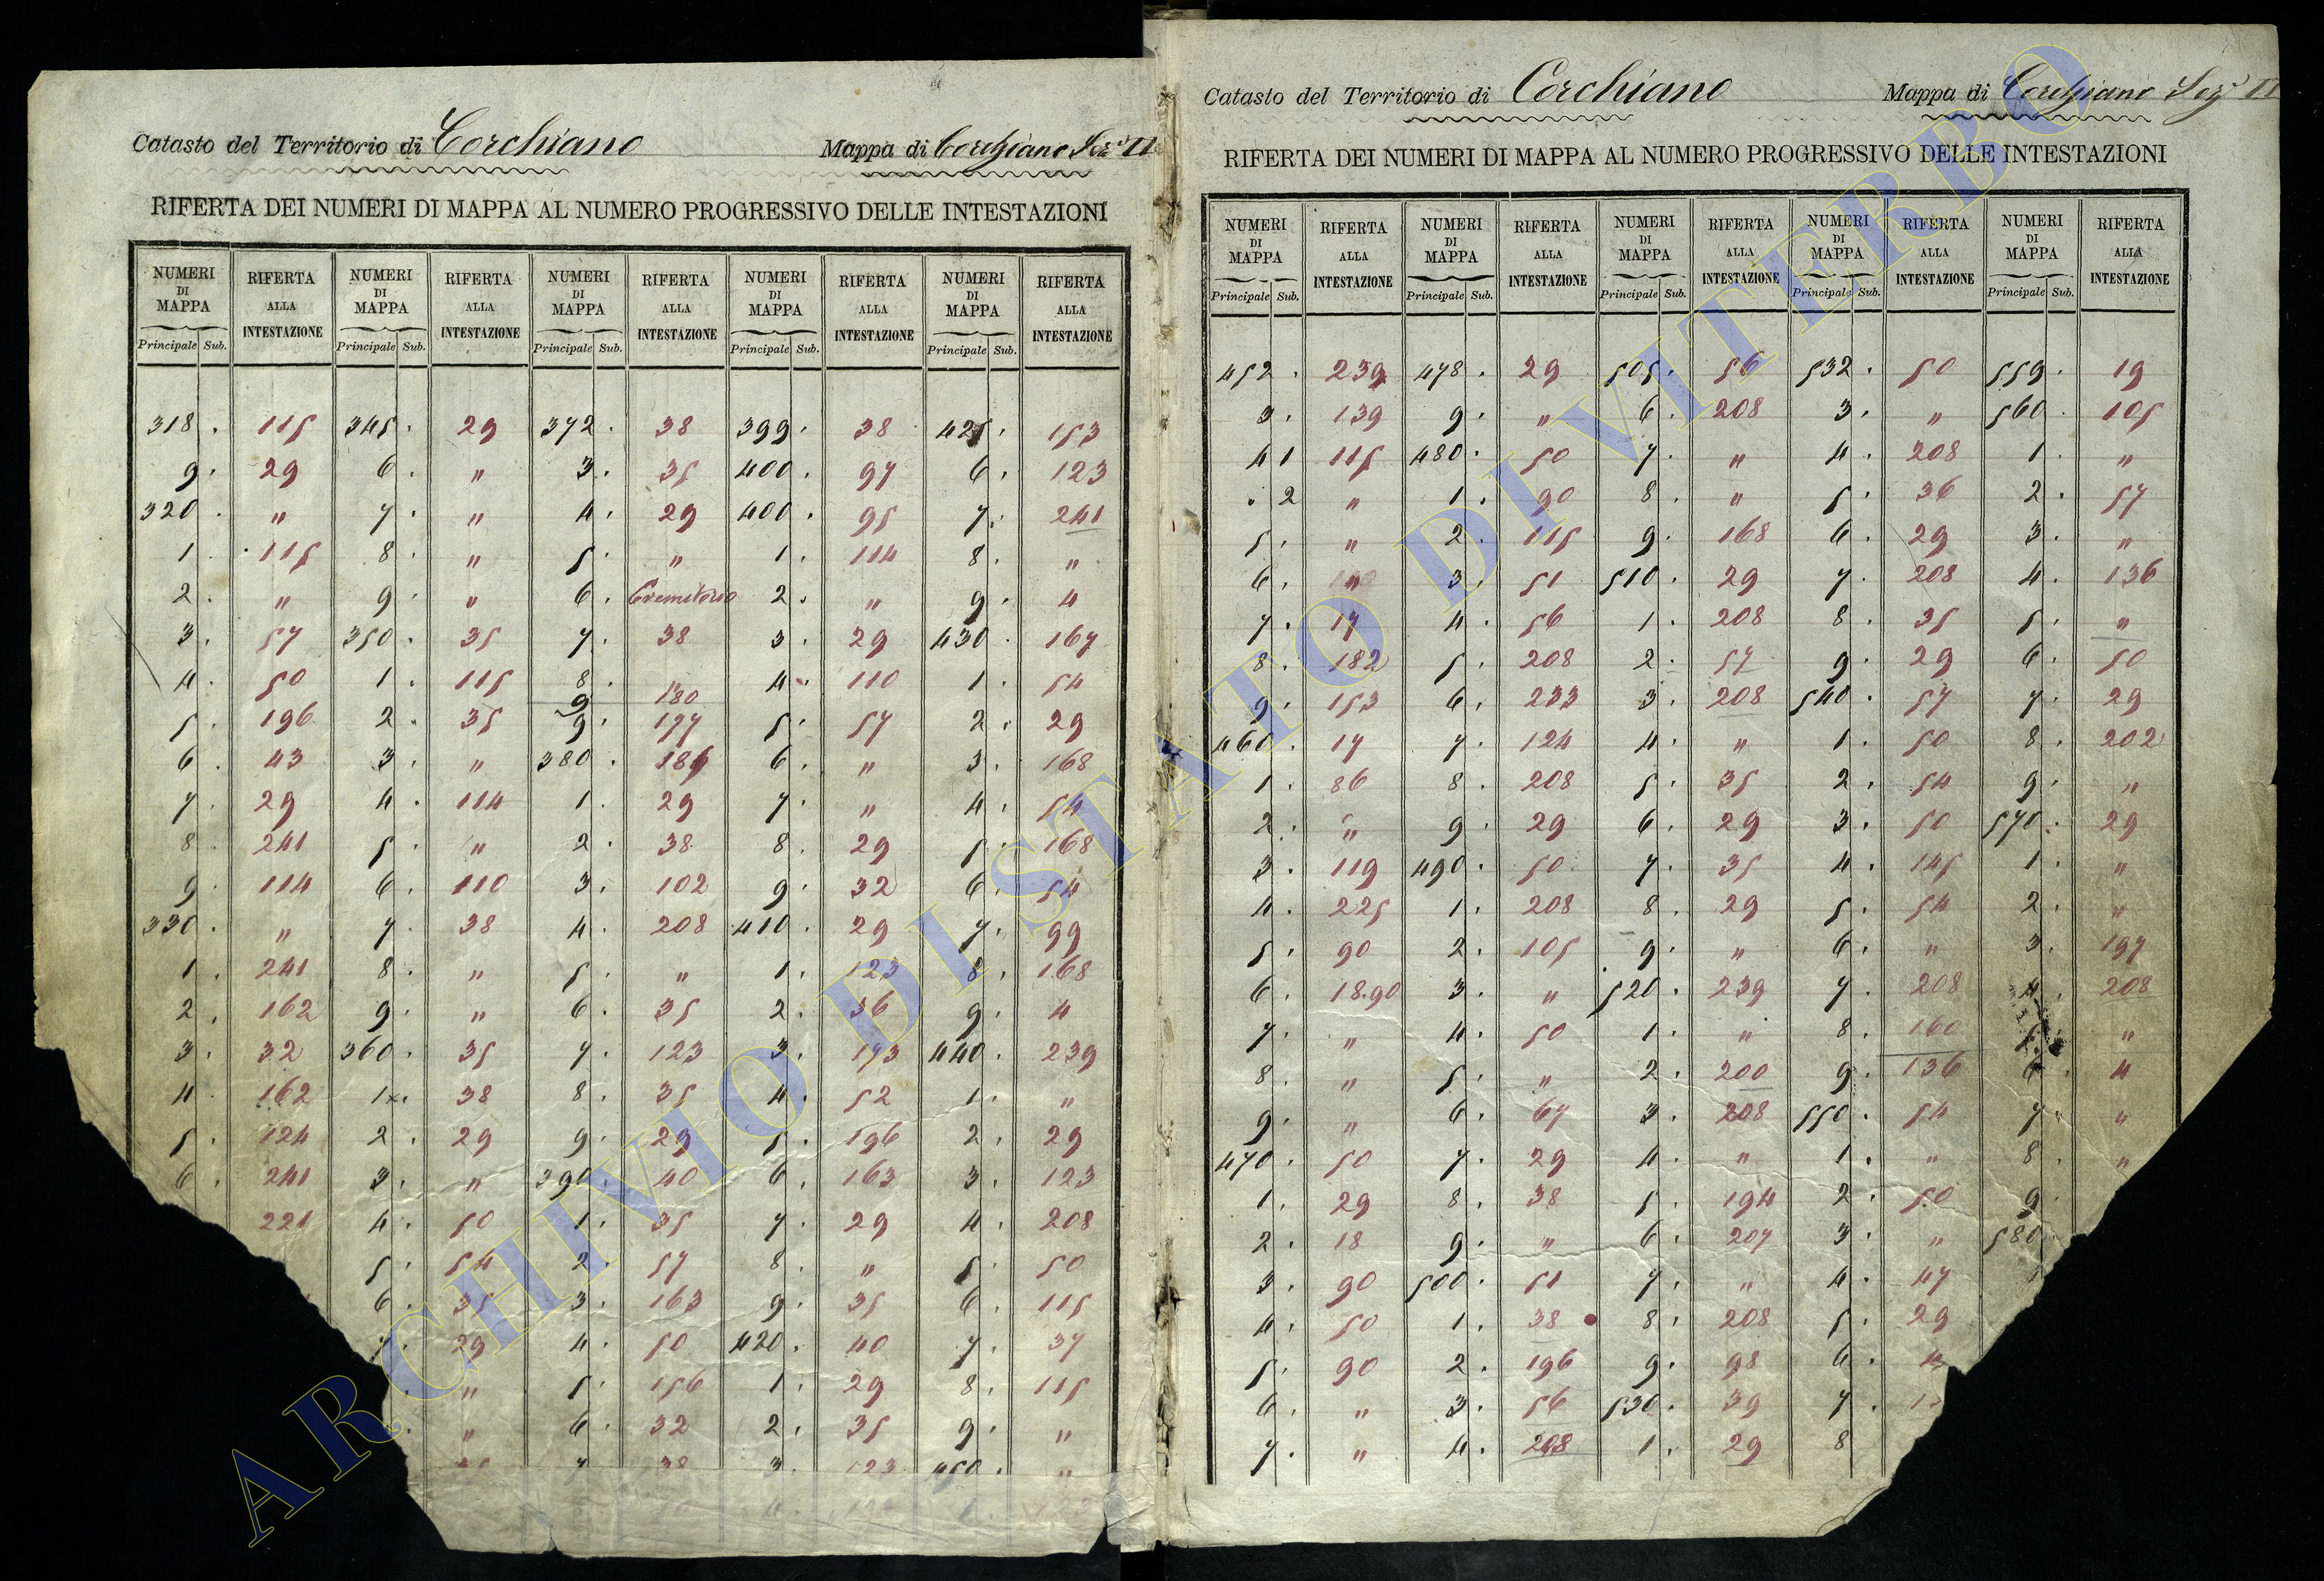 Catasto del Territorio di Corchiano Mappa di Corchiano Sez. II
RIFERTA DEI NUMERI DI MAPPA AL NUMERO PROGRESSIVO DELLE INTESTAZIONI
NUMERI DI MAPPA RIFERTA ALLA INTESTAZIONE NUMERI DI MAPPA RIFERTA ALLA INTESTAZIONE NUMERI DI MAPPA RIFERTA ALLA INTESTAZIONE NUMERI DI MAPPA RIFERTA ALLA INTESTAZIONE NUMERI DI MAPPA RIFERTA ALLA INTESTAZIONE
Principale Sub. Principale Sub. Principale Sub. Principale Sub. Principale Sub.
318 . 115 345 . 29 372 . 38 399 . 38 425 . 153
9 . 29 6 . " 3 . 35 400 . 97 6 . 123
320 . " 7 . " 4 . 29 400 . 95 7 . 241
1 . 115 8 . " 5 . " 1 . 114 8 . "
2 . " 9 . " 6 . 2 . " 9 . 4
3 . 57 350 . 35 7 . 38 3 . 29 430 . 167
4 . 50 1 . 115 8 . " 4 . 110 1 . 54
9 180
5 . 196 2 . 35 9 . 177 5 . 57 2 . 29
6 . 43 3 . " 380 . 186 6 . " 3 . 168
7 . 29 4 . 114 1 . 29 7 . " 4 . 54
8 . 241 5 . " 2 . 38 8 . 29 5 . 168
9 . 114 6 . 110 3 . 102 9 . 32 6 . 54
330 . " 7 . 38 4 . 208 410 . 29 7 . 99
1 . 241 8 . " 5 . " 1 . 123 8 . 168
2 . 162 9 . " 6 . 35 2 . 36 9 . 4
3 . 32 360 . 35 7 . 123 3 . 193 440 . 239
4 . 162 1 . 38 8 . 35 4 . 52 1 . "
5 . 124 2 . 29 9 . 29 5 . 196 2 . 29
6 . 241 3 . " 390 . 40 6 . 163 3 . 123
221 4 . 50 1 . 35 7 . 29 4 . 208
5 . 54 2 . 57 8 . " 5 . 50
6 . 35 3 . 163 9 . 35 6 . 115
7 . 29 4 . 50 420 . 40 7 . 37
. " 5 . 156 1 . 29 8 . 115
. " 6 . 32 2 . 35 9 . "
7 38 3 . 123 450 . "
Catasto del Territorio di Corchiano Mappa di Corchiano Sez. II
RIFERTA DEI NUMERI DI MAPPA AL NUMERO PROGRESSIVO DELLE INTESTAZIONI
NUMERI DI MAPPA RIFERTA ALLA INTESTAZIONE NUMERI DI MAPPA RIFERTA ALLA INTESTAZIONE NUMERI DI MAPPA RIFERTA ALLA INTESTAZIONE NUMERI DI MAPPA RIFERTA ALLA INTESTAZIONE NUMERI DI MAPPA RIFERTA ALLA INTESTAZIONE
Principale Sub. Principale Sub. Principale Sub. Principale Sub. Principale Sub.
452 . 239 478 . 29 505 . 56 532 . 50 559 . 19
3 . 139 9 . " 6 . 208 3 . " 560 . 105
4 1 115 480 . 50 7 . " 4 . 208 1 . "
. 2 " 1 . 90 8 . " 5 . 36 2 . 57
5 . " 2 . 115 9 . 168 6 . 29 3 . "
6 . " 3 . 51 510 . 29 7 . 208 4 . 136
7 . 17 4 . 56 1 . 208 8 . 35 5 . "
8 . 182 5 . 208 2 . 57 9 . 29 6 . 50
9 . 153 6 . 233 3 . 208 540 . 57 7 . 29
460 . 17 7 . 124 4 . " 1 . 50 8 . 202
1 . 86 8 . 208 5 . 35 2 . 54 9 . "
2 . " 9 . 29 6 . 29 3 . 50 570 . 29
3 . 119 490 . 50 7 . 35 4 . 145 1 . "
4 . 225 1 . 208 8 . 29 5 . 54 2 . "
5 . 90 2 . 105 9 . " 6 . " 3 . 197
6 . 18.90 3 . " 520 . 239 7 . 208 4 . 208
7 . " 4 . 50 1 . " 8 . 160 5 . "
8 . " 5 . " 2 . 200 9 . 136 6 . 4
9 . " 6 . 67 3 . 208 550 . 54 7 . "
470 . 50 7 . 29 4 . " 1 . " 8 . "
1 . 29 8 . 38 5 . 194 2 . 50 9
2 . 18 9 . " 6 . 207 3 . " 580
3 . 90 500 . 51 7 . " 4 . 47 1
4 . 50 1 . 38 8 . 208 5 . 29
5 . 90 2 . 196 9 . 98 6 .
6 . " 3 . 56 530 . 39 7 .
7 . " 4 . 208 1 . 29 8
ARCHIVIO DI STATO DI VITERBO